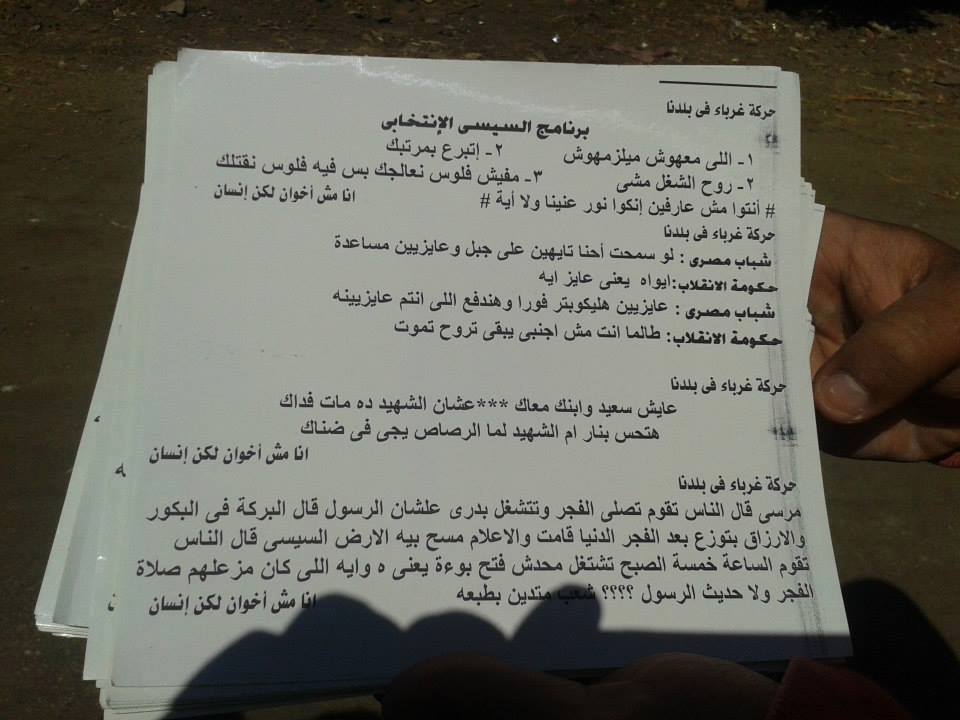 حركة غرباء فى بلدنا
برنامج السيسى الإنتخابى
١- اللى معهوش ميلزمهوش ٢- إتبرع بمرتبك
٢- روح الشغل مشى ٣- مفيش فلوس نعالجك بس فيه فلوس نقتلك
# أنتوا مش عارفين إنكوا نور عنينا ولا أية # انا مش أخوان لكن إنسان
حركة غرباء فى بلدنا
شباب مصرى : لو سمحت أحنا تايهين على جبل وعايزيين مساعدة
حكومة الانقلاب:ايواه يعنى عايز ايه
شباب مصرى : عايزيين هليكوبتر فورا وهندفع اللى انتم عايزيينه
حكومة الانقلاب: طالما انت مش اجنبى يبقى تروح تموت
حركة غرباء فى بلدنا
عايش سعيد وابنك معاك ***عشان الشهيد ده مات فداك
هتحس بنار ام الشهيد لما الرصاص يجى فى ضناك
انا مش أخوان لكن إنسان
حركة غرباء فى بلدنا
مرسى قال الناس تقوم تصلى الفجر وتتشغل بدرى علشان الرسول قال البركة فى البكور
والارزاق بتوزع بعد الفجر الدنيا قامت والاعلام مسح بيه الارض السيسى قال الناس
تقوم الساعة خمسة الصبح تشتغل محدش فتح بوءة يعنى ه وايه اللى كان مزعلهم صلاة
الفجر ولا حديث الرسول ؟؟؟؟ شعب متدين بطبعه
انا مش أخوان لكن إنسان